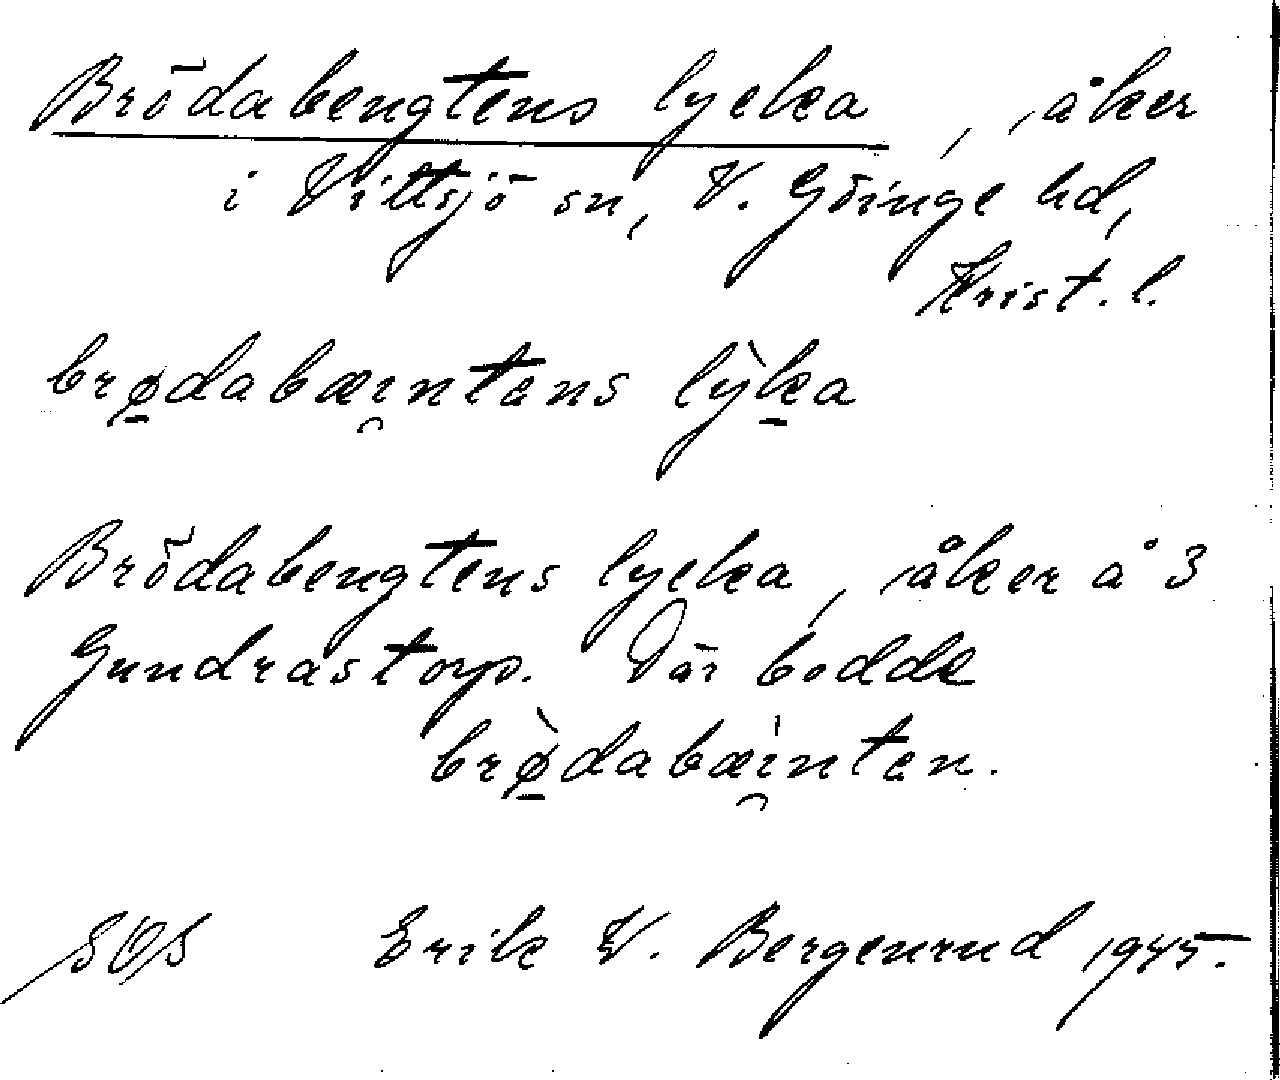 Brödabengtens lycka, åker
i Vittsjö sn, V. Göinge hd,
Krist. l.
brø̠dabæi̯ntəns lỳk̠a
Brödabengtens lycka, åker å 3
Gundrastorp. Där bodde
brø̠̀dabæi̯̍ntən.
Erik W. Bergenrud 1945.